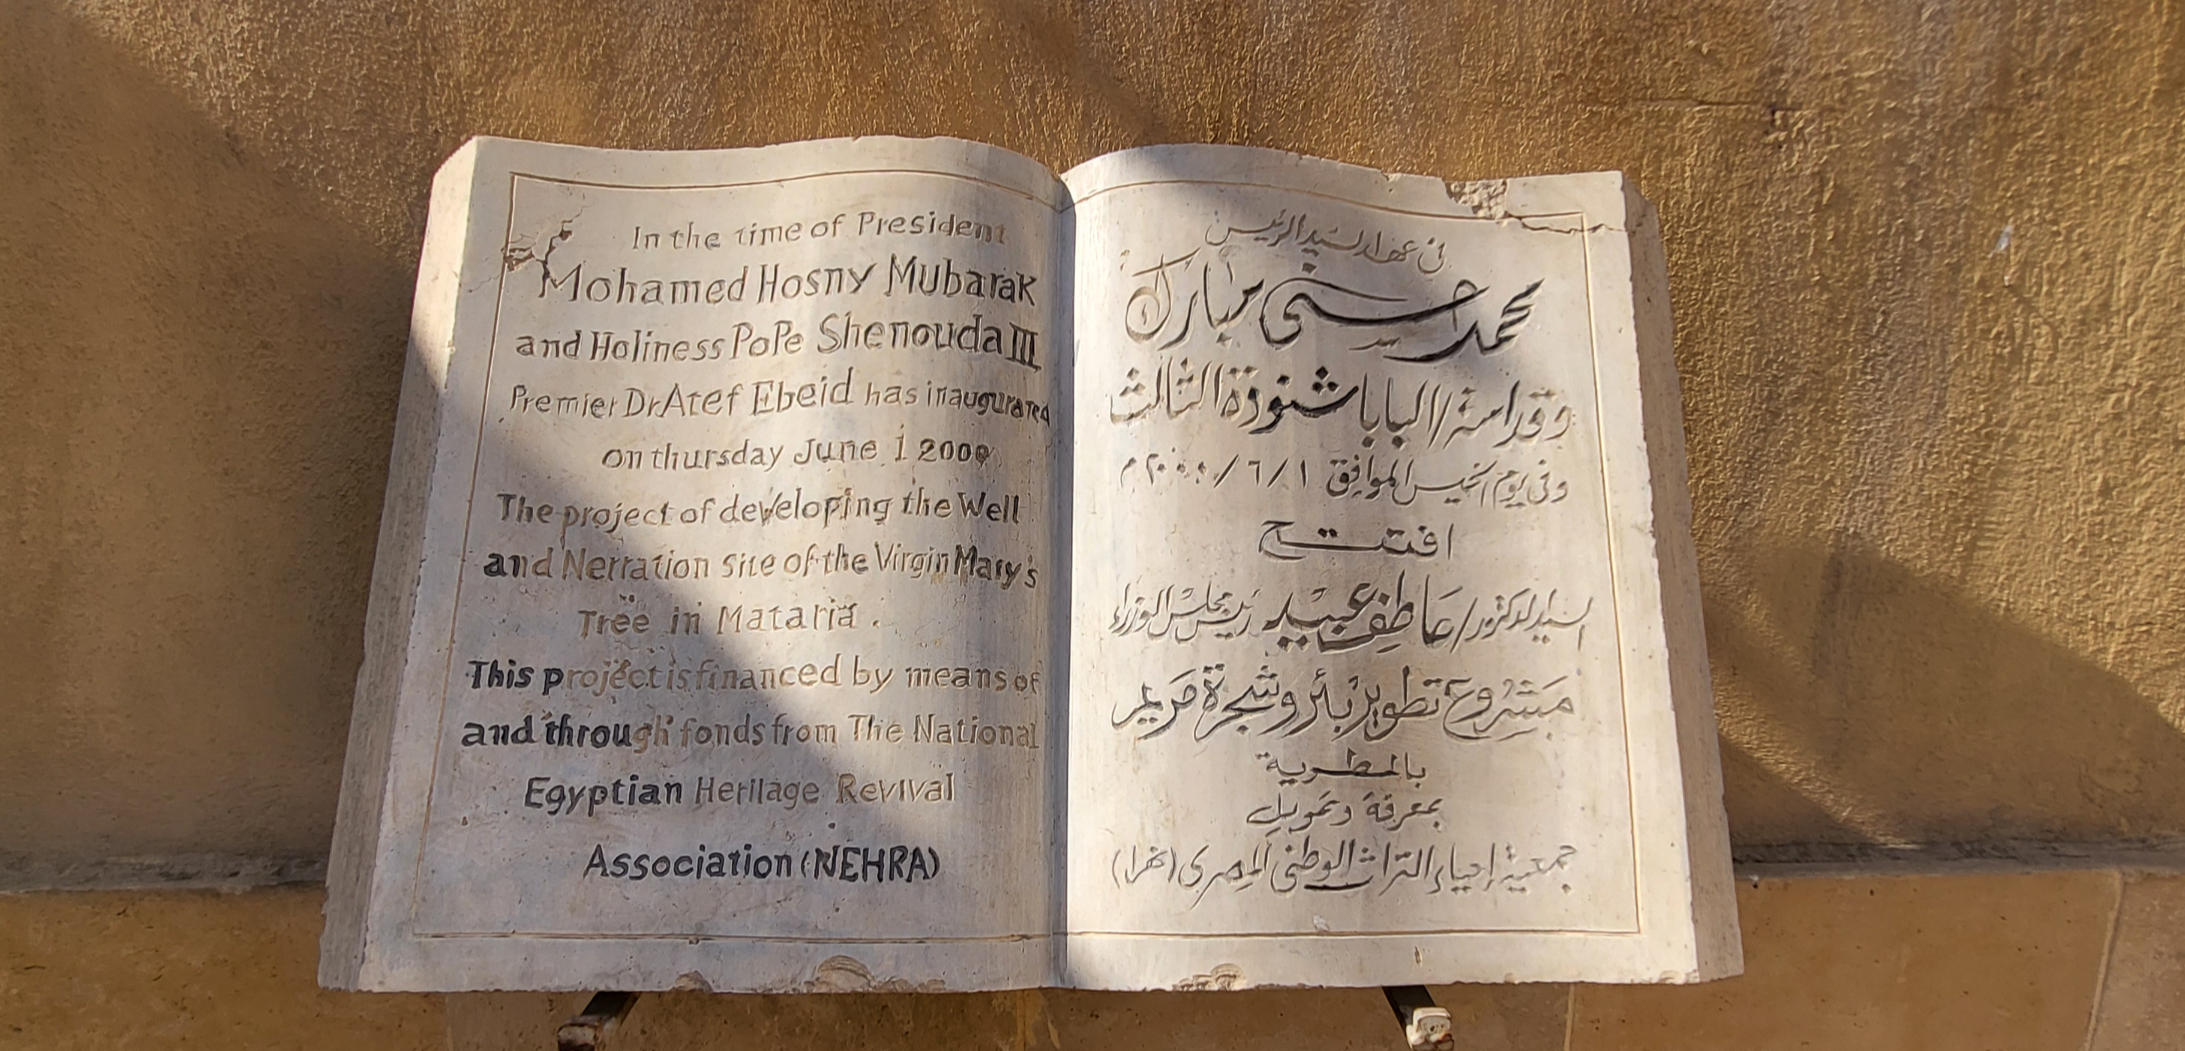 In the time of President
Mohamed Hosny Mubarak
and Holiness PoPe Shenouda III
Premier Dr Atef Ebeid has inaugurated
on thursday June 1 2000
The project of developing the Well
and Nerration site of the Virgin Mary's
Tree in Mataria.
This project is financed by means of
and through fonds from The National
Egyptian Heritage Revival
Association (NEHRA)
فى عهد السيد الرئيس
محمد حسنى مبارك
وقداسة/ البابا شنودة الثالث
وفى يوم الخميس الموافق ١/ ٦/ ٢٠٠٠ م
افتتح
السيد الدكتور/ عاطف عبيد رئيس مجلس الوزراء
مشروع تطوير بئر وشجرة مريم
بالمطرية
بمعرفة وتمويل
جمعية إحياء التراث الوطنى المصرى (نهرا)